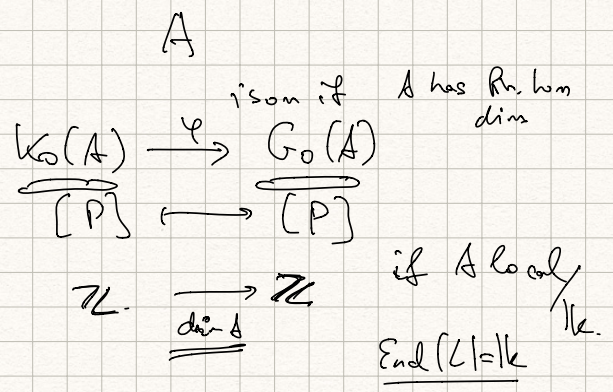 A
isom if A has fin. hom
dim
K₀(A) —φ→ G₀(A)
[P] ⟼ [P]
ℤ. ⟶ ℤ if A local/
dim A lk.
End(L)=lk